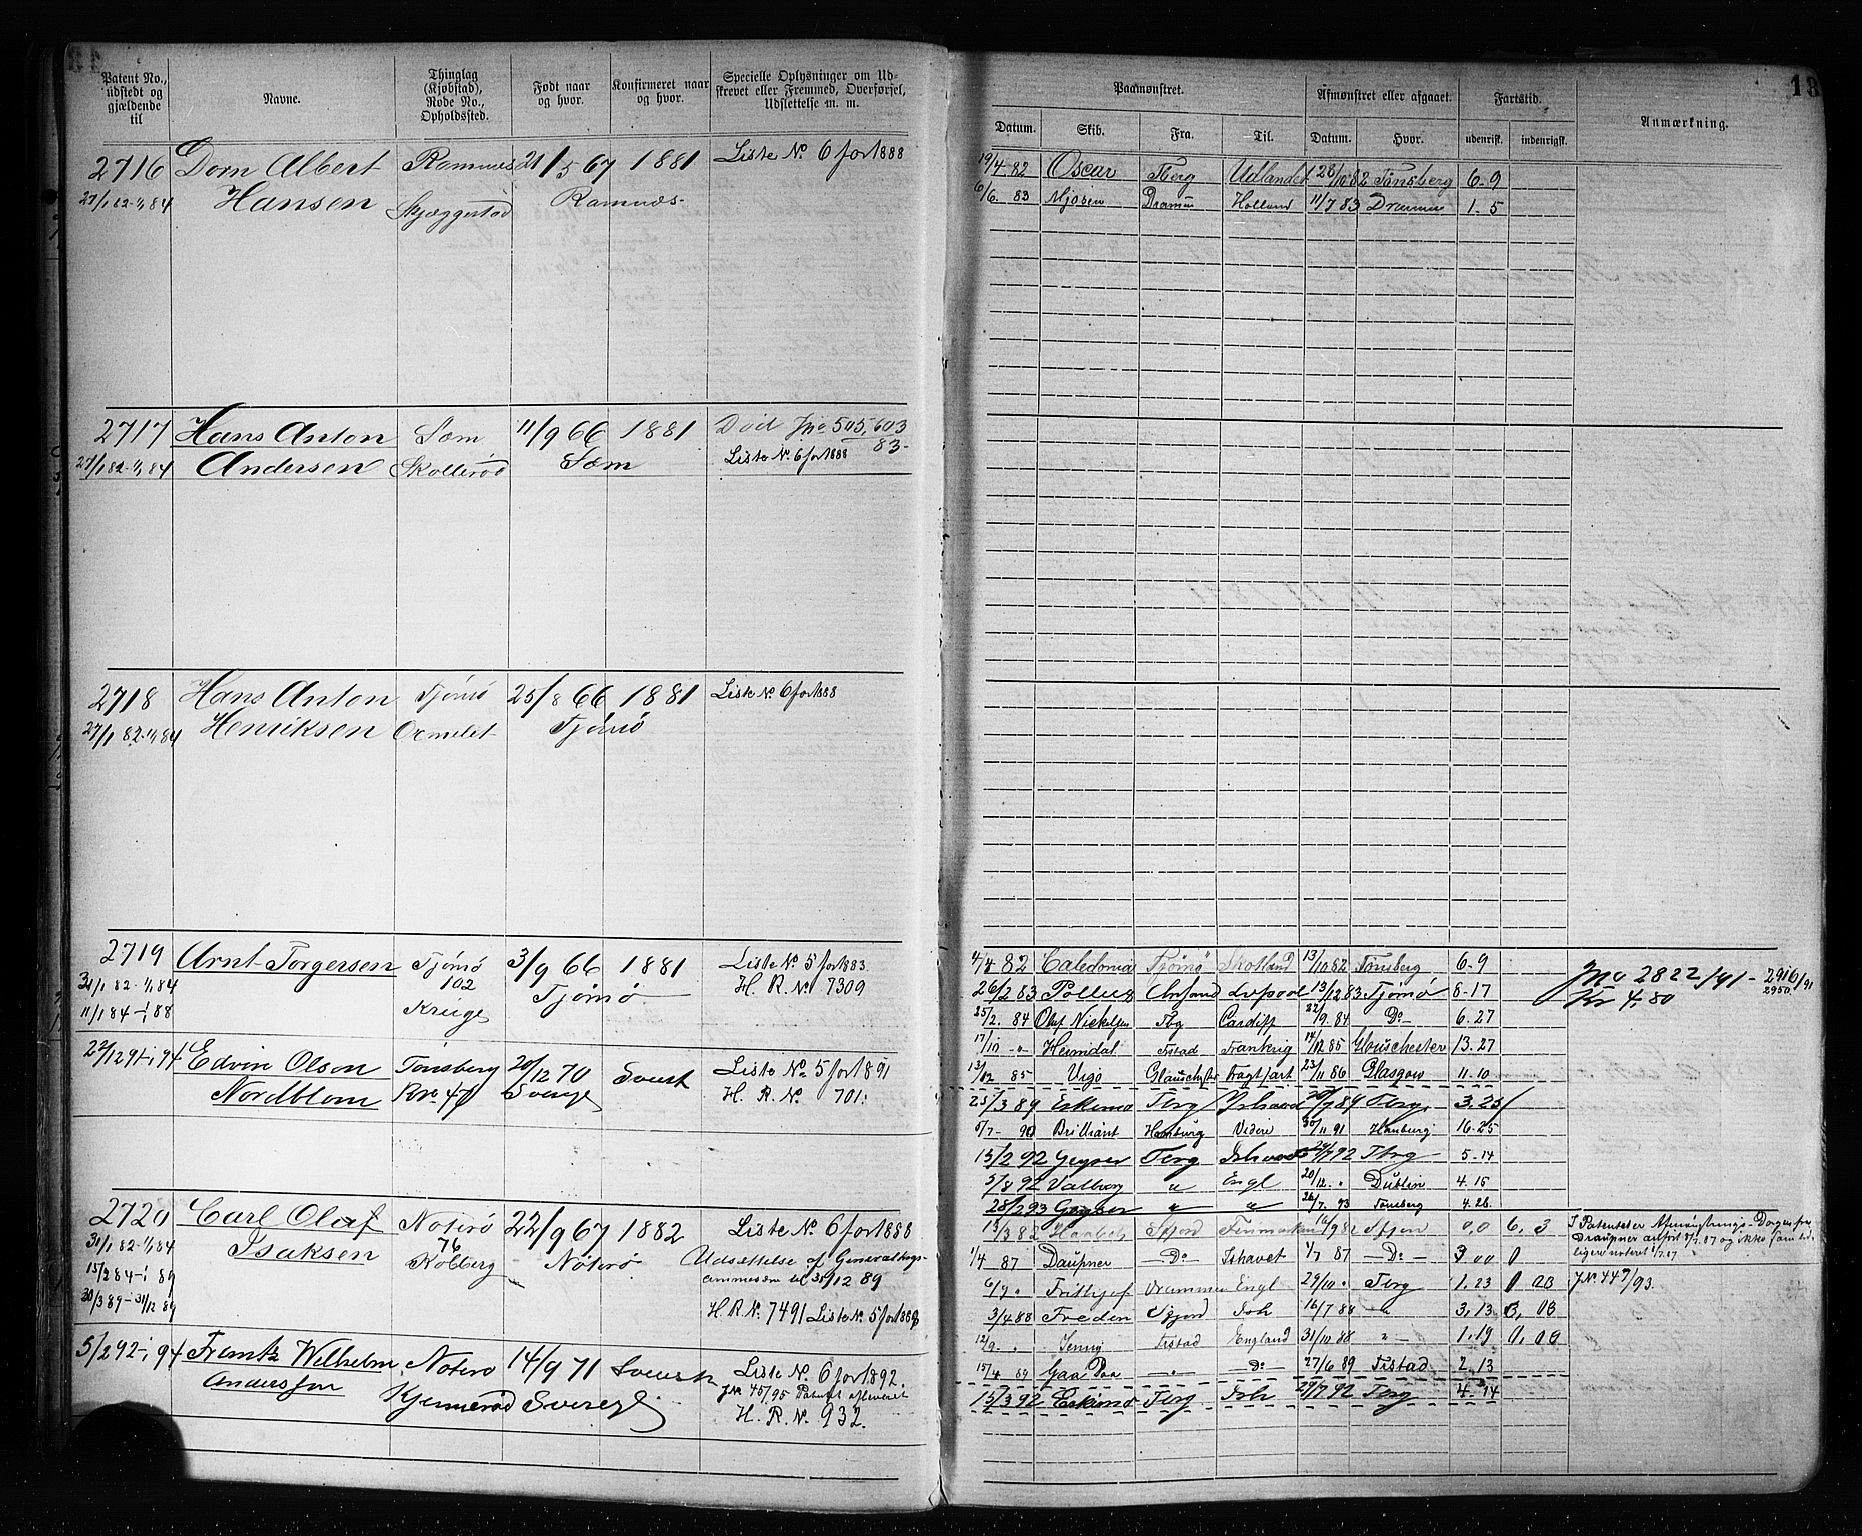 Patent No., udstedt og gjældende til
Navne.
Thinglag (Kjøbstad), Rode No., Opholdssted.
Født naar og hvor.
Konfirmeret naar og hvor.
Specielle Oplysninger om Udskrevet eller Fremmed, Overførsel, Udslettelse m. m.
2716 Dorn Albert Ramnes 21/5 67 1881 Liste No. 6 for 1888
27/1 82-1/1 84 Hansen Skjæggestad Ramnæs
2717 Hans Anton Sæm 11/9 66 1881 Død Jno 505, 603
27/1 82-1/1 84 Andersen Skollerød Sæm Liste No. 6 for 1888 83-
2718 Hans Anton Tjømø 25/8 66 1881 Liste No. 6 for 1888
27/1 82-1/1 84 Henriksen Ormelet Tjømø
2719 Arnt Torgersen Tjømø 3/9 66 1881 Liste No. 5 for 1883.
31/1 82-1/1 84 102 Tjømø H. R. No. 7309
11/1 84-1/1 88 Kruge
22/12 91-1/1 94 Edvin Olson Tønsberg 20/12 70 Svensk Liste No. 5 for 1891
Nordblom Rno 47 Sverige H. R. No. 701.
2720 Carl Olaf Nøterø 22/9 67 1882 Liste No. 6 for 1888
31/1 82-1/1 84 Isaksen 76 Nøterø Udsættelse af Generalkrigs-
15/2 84-1/1 89 Kolberg ammesæn til 31/12 89
30/3 89-31/12 89 H.R.No. 7491 Liste No. 5 for 1889
5/2 92-1/1 94 Frentz Wilhelm Nøterø 14/9 71 Svensk Liste No. 6 for 1892.
Anderssøn Kjennerød Sverige JNo. 45/95 Patent afleveret
H. R. No. 932.
18
Paamønstret.
Afmønstret eller afgaaet.
Fartstid.
Anmærkning.
Datum. Skib. Fra. Til. Datum. Hvor. udenrisk. indenrigsk.
19/4 82 Oscar Tberg Udlandet 28/10 82 Tønsberg 6-9
6/6. 83 Mjøsen Dramen Holland 11/7 83 Drammen 1-5
4/4 82 Caledonia Tjømø Skotland 13/10 82 Tønsberg 6-9
26/2 83 Pollux Chrsand Lvpool 13/12 83 Tjømø 8-17 Jno 2822/91 - 2916/91
2950
Kr 4.80
25/2. 84 Olaf Nickelsen Tbg Cardiff 22/9. 84 Do 6.27
17/10 -"- Heimdal Fstad Frankrig 14/12 85 Glouschester 13.27
13/12 85 Vigo Glauschster Fragtfart 23/11 86 Glasgow 11-10
25/3 89 Eskimo Tbrg Ishavet 20/7 89 Tbrg 3.25
5/7- 90 Brilliant Hamburg Videre 30/11 91 Hamburg 16-25
15/2 92 Geyser Tbrg Ishavet 24/7 92 Tbrg 5-14
5/8 92 Valborg " Engl 20/12. " Dublin 4.15
28/2 93 Geyser " " 26/7. 93 Tønsberg 4.28
13/3 82 Haabet Sfjord Finmarken 16/9 82 Sfjor 0,0 6, 3 I Patentet er Afmønstrings-Dagen fra
Draupner anført 8/7. 87 og ikke som tid-
ligere noteret 1/7.87
1/4 87 Daupner - Do - Ishavet 1/7 87 - Do - 3 00 0
6/9 " Frithjof Drammen Engl 29/10 " Tbrg 1.23 0 08 JNo. 447/93.
3/4 88 Freden Sfjord Ish 16/7 88 " 3,13 3, 08
12/9- " Jenny Fristad England 31/10 88 " 1.19 0, 00
15/4 89 Gaa Paa - " - Do 27/6 89 Fristad 2.13
15/3 92 Eskimo Tbrg Ish 29/7 92 Tbrg 4.14